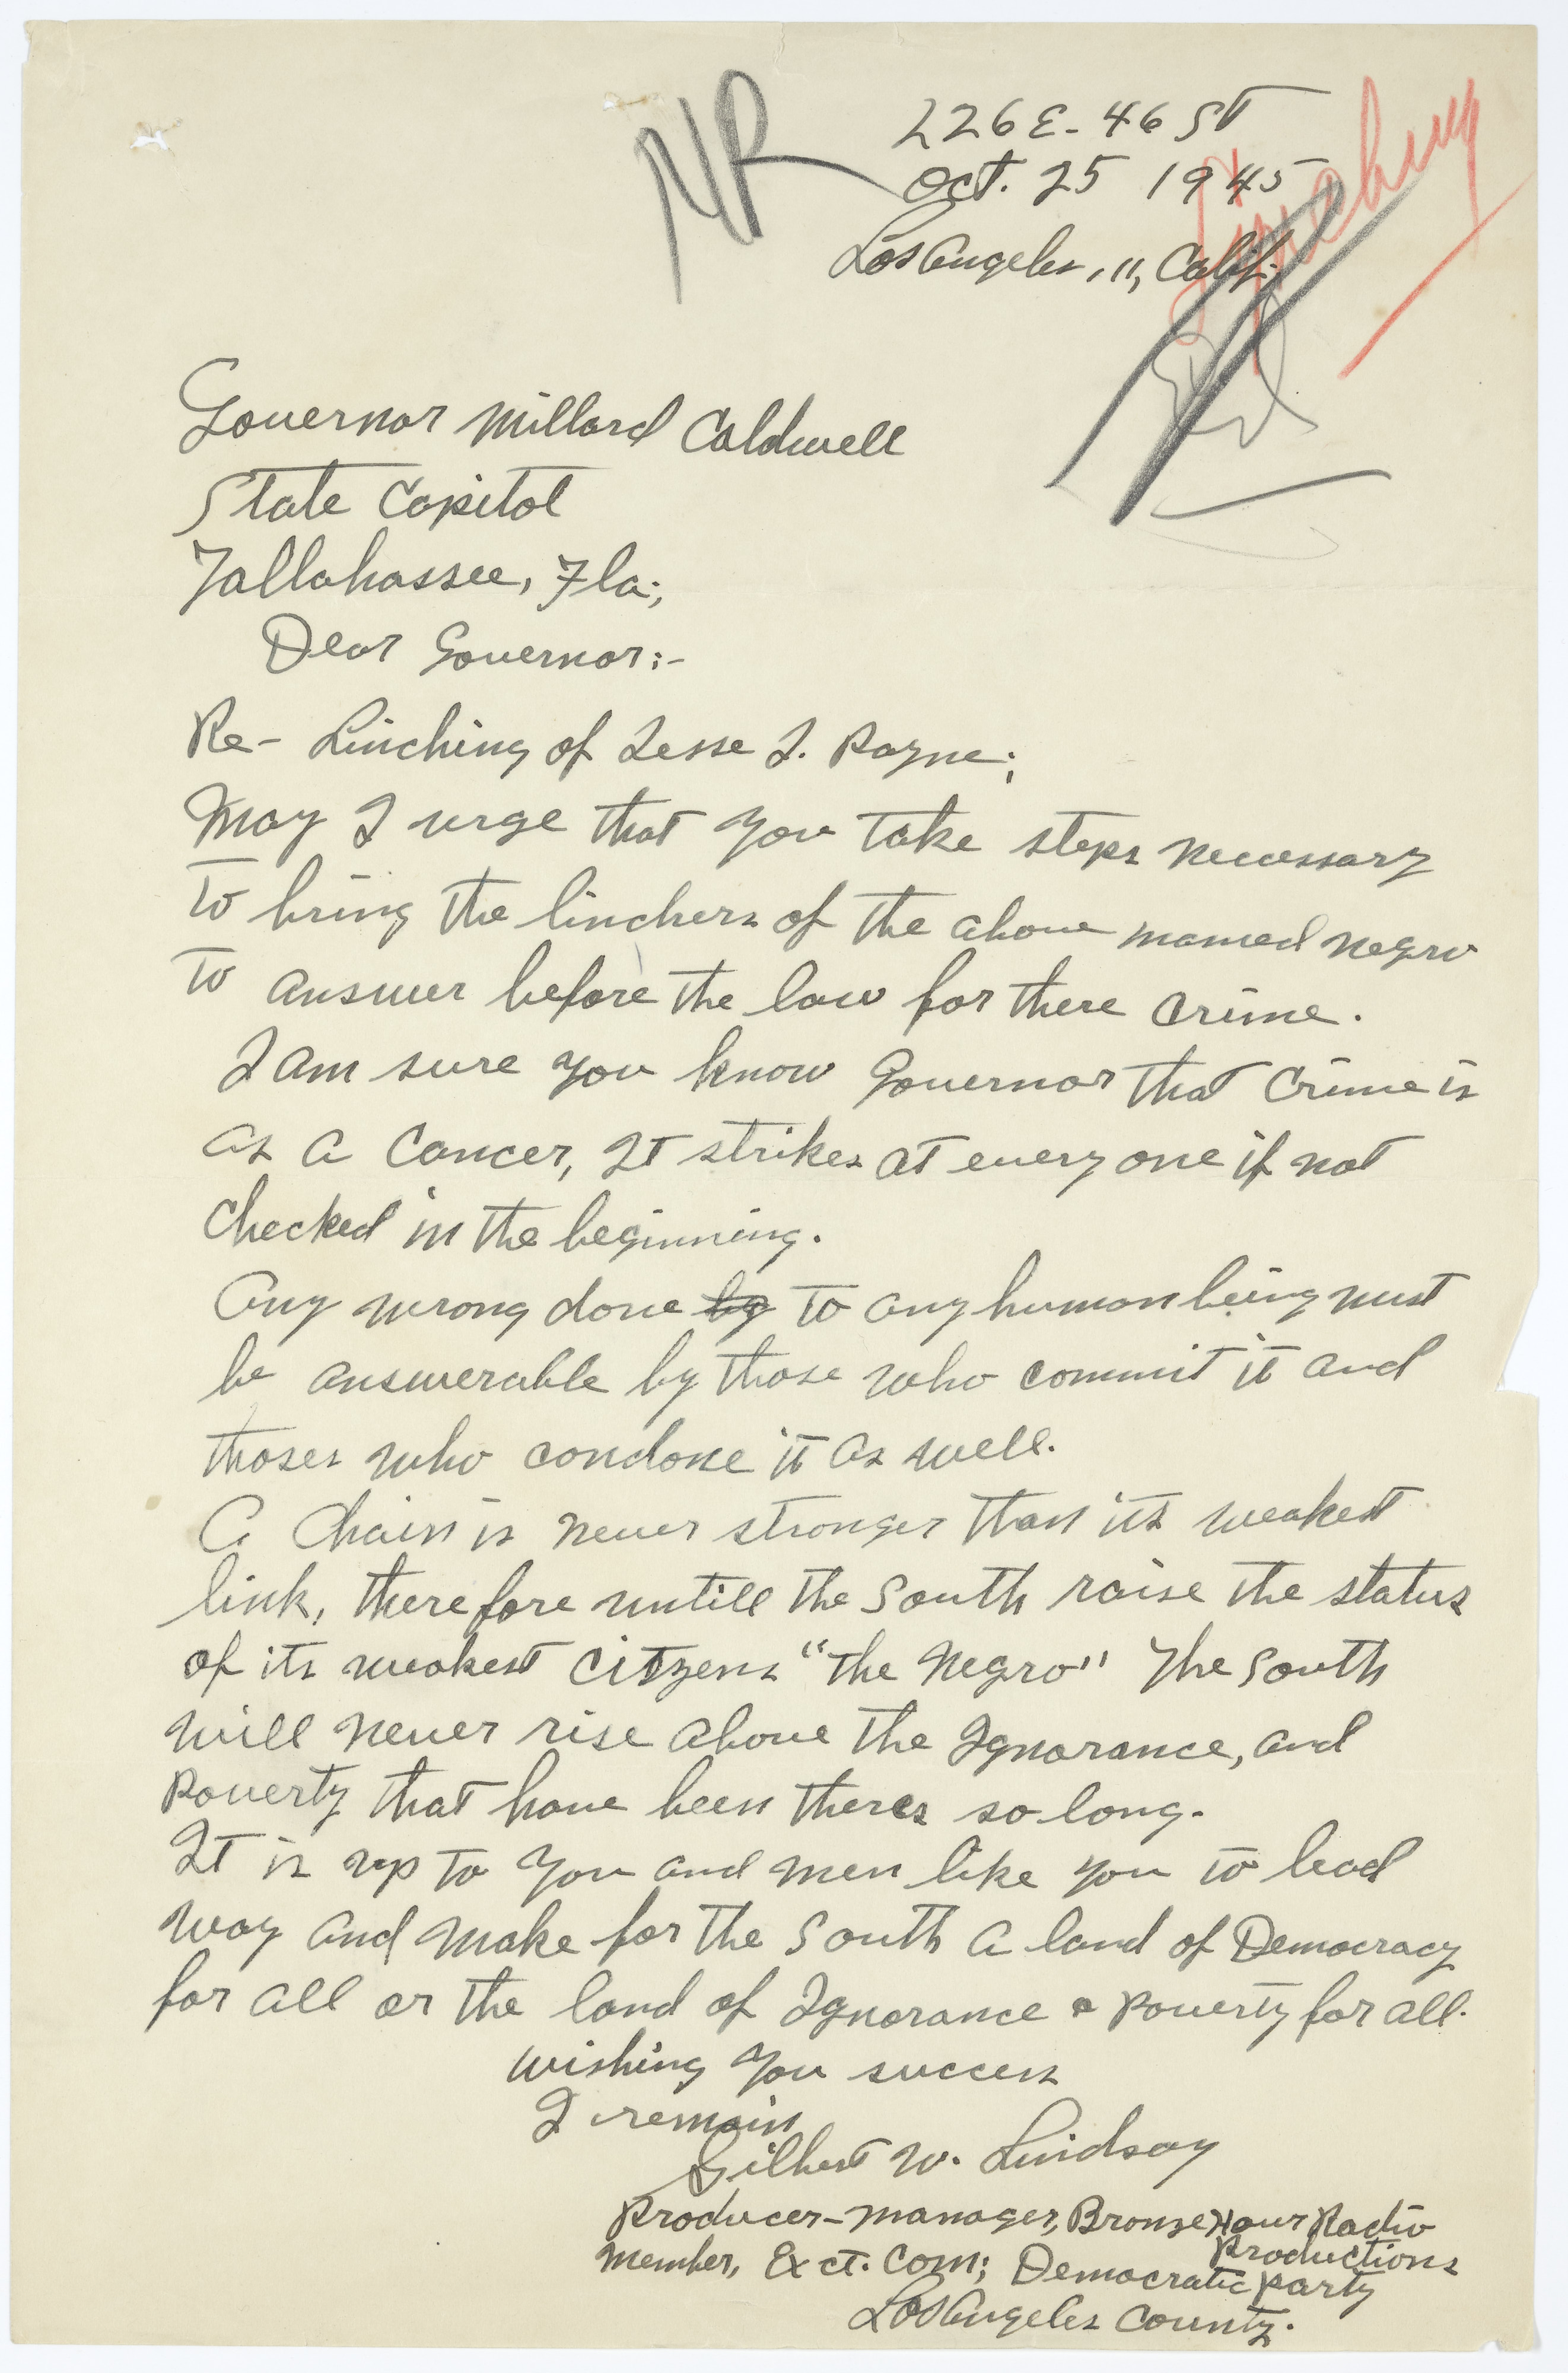 NR
226 E. 46 ST
Oct. 25 1945
Lynching
Los Angeles, 11, Calif.
Governor Millard Caldwell
State Capitol
Tallahassee, Fla;
Dear Governor:-
Re- Linching of Jesse J. Payne;
May I urge that you take steps necessary
To bring the linchers of the above mamed negro
To answer before the law for there crime.
I am sure you know Governor that Crime is
as a Cancer, It strikes at every one if not
checked in the beginning.
Any wrong done by to any human being must
be answerable by those who commit it and
thoses who condone it as well.
A Chain is never stronger than its weakest
link, therefore untill the South raise the status
of its weakest citzens "the Negro" The South
will never rise above the Ignorance, and
Poverty that have been theres so long.
It is up to you and men like you to lead
way and make for the South a land of Democracy
for all or the land of Ignorance & poverty for all.
Wishing you success
I remain
Gilbert W. Lindsay
Producer-manager, Bronze Hour Radio
Productions
Member, Exct. Com; Democratic party
Los Angeles County.